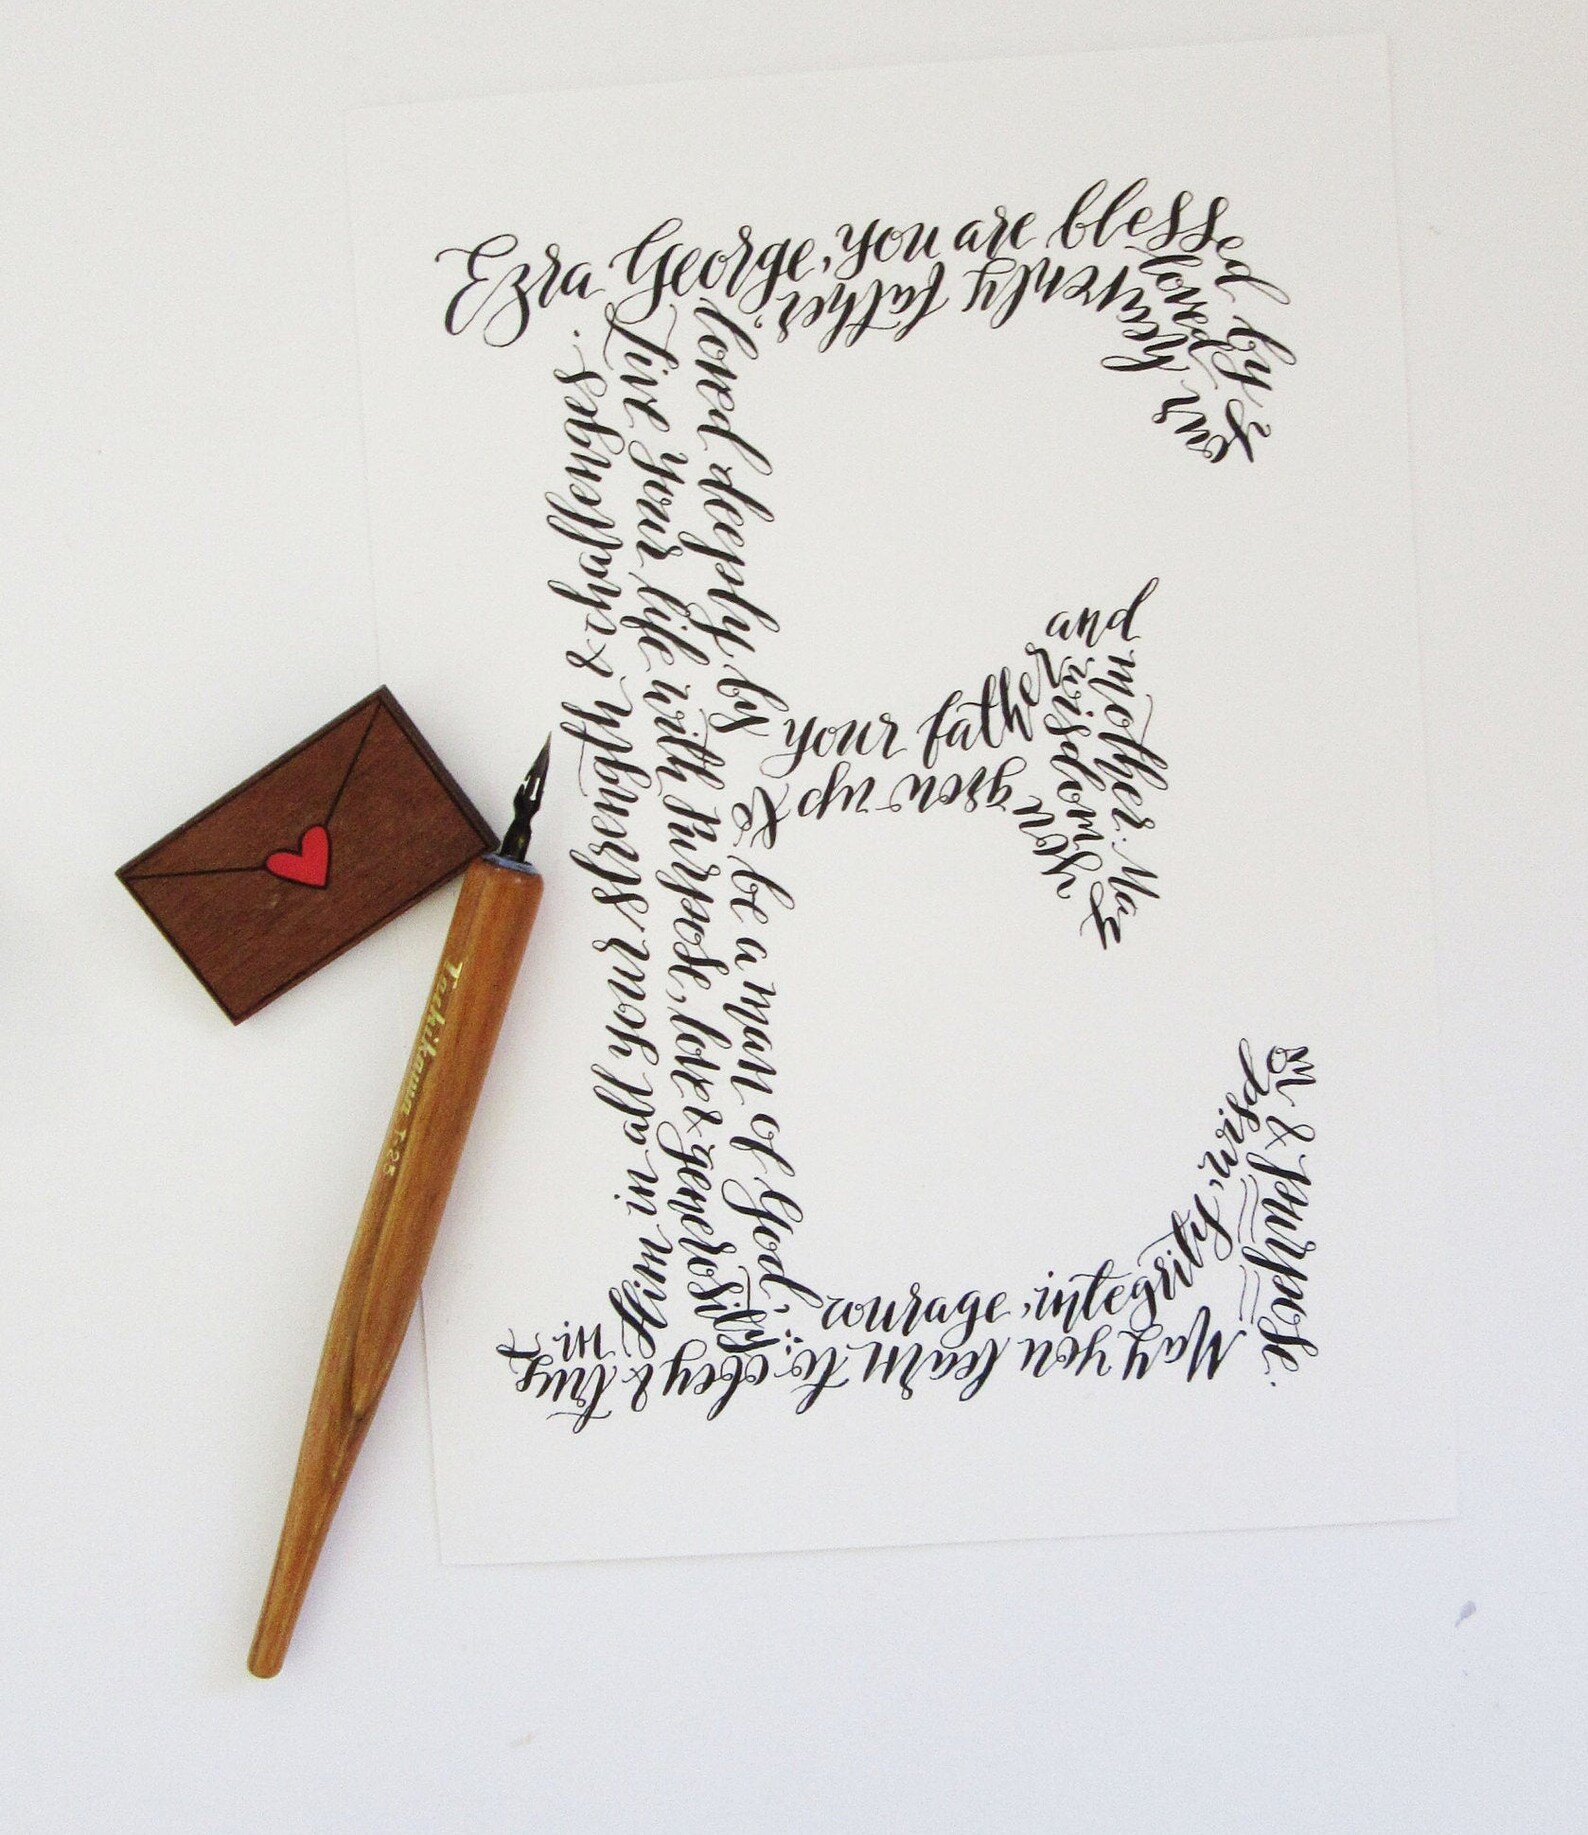 Ezra George, you are blessed by your
loved
heavenly father,
loved deeply by
your father
and mother. May
you
grow up to
be a man of God,
wisdom
courage, integrity,
& purpose.
May you learn to obey & trust
Him in all your strength & challenges.
Live your life with purpose, love & generosity
Tachikawa T-25